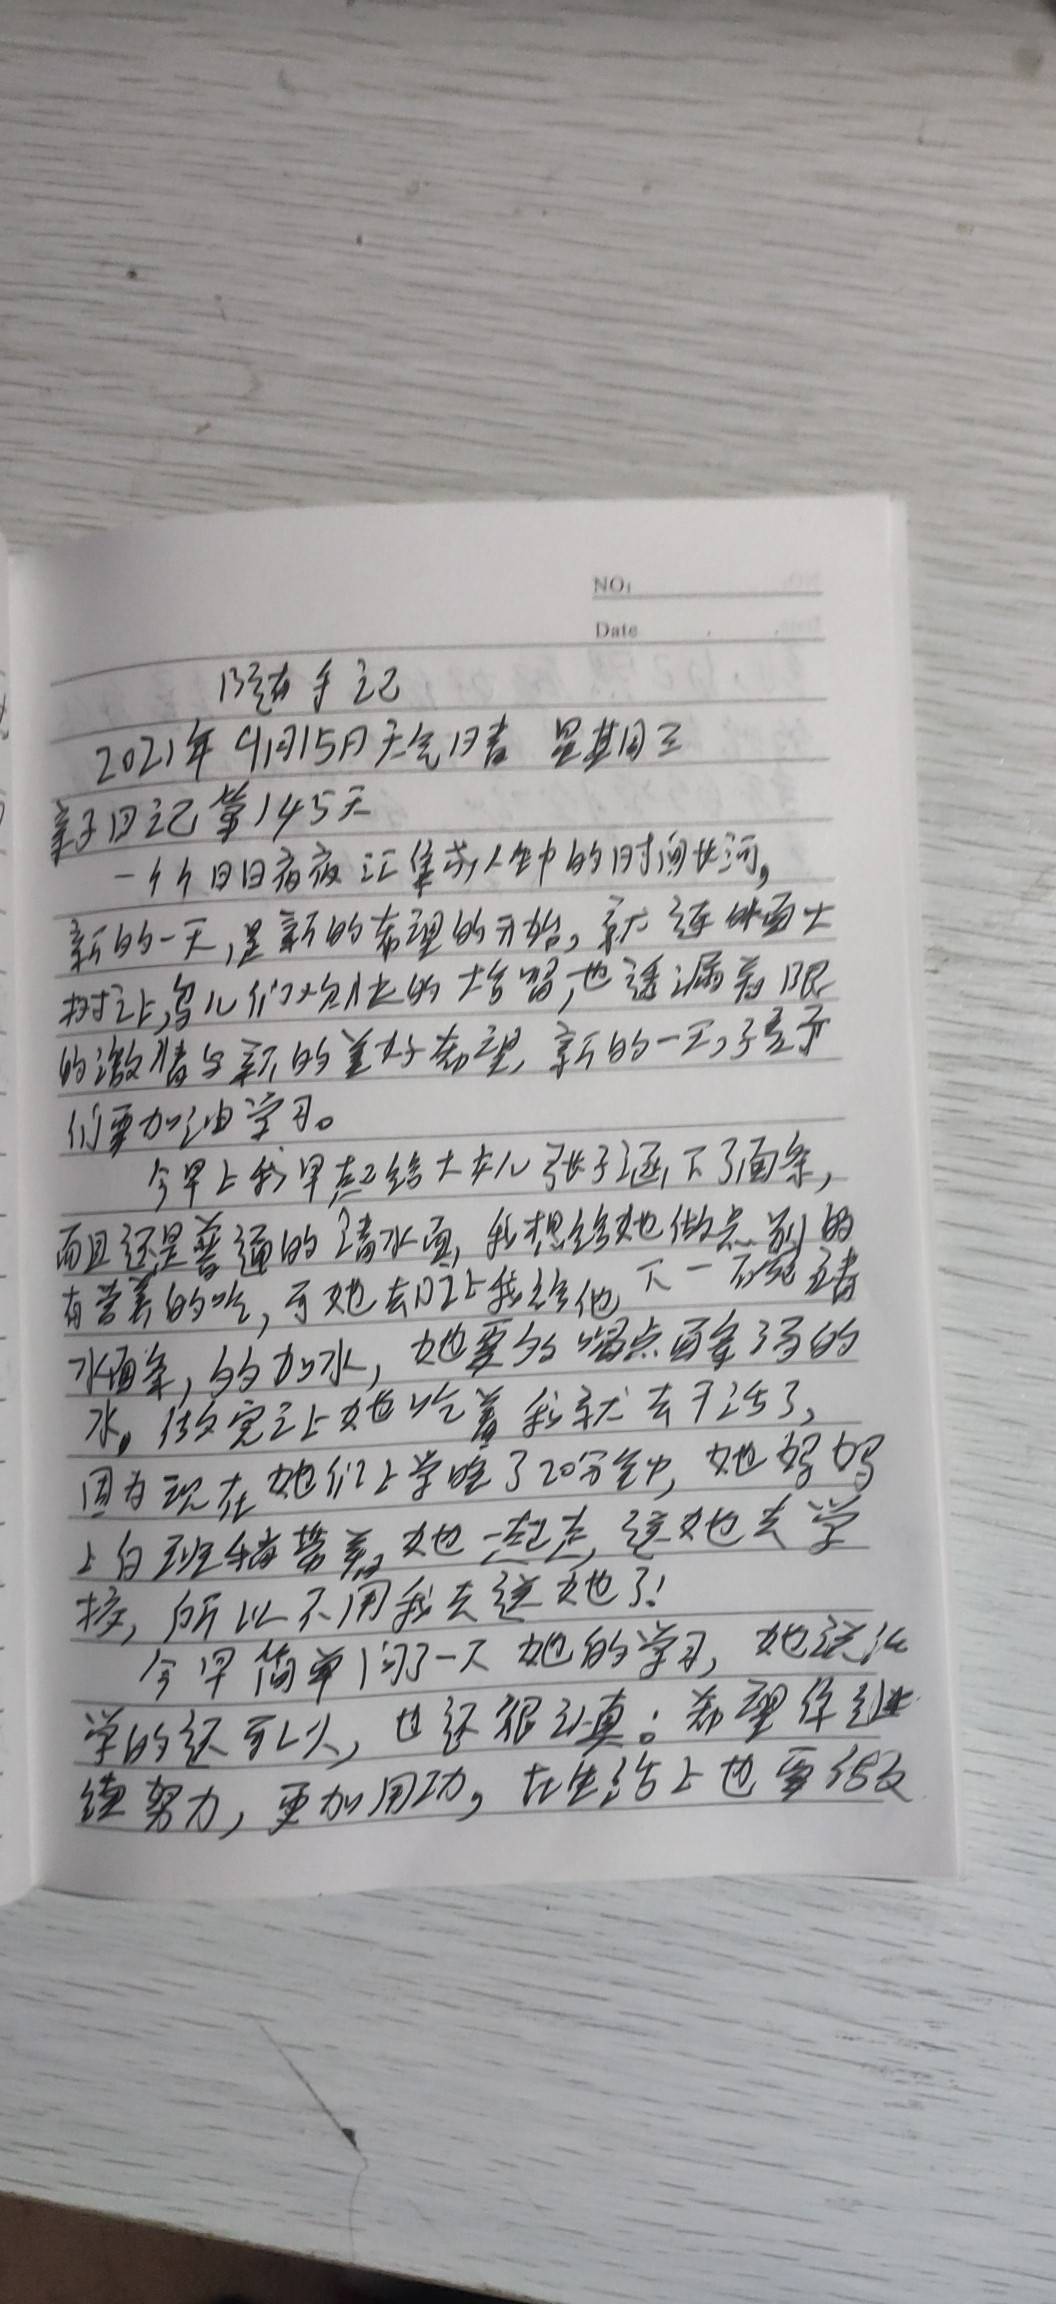 NO:
Date
随手记
2021年9月15日天气晴 星期三
亲子日记第145天
一个个日日夜夜汇集成人生中的时间长河,
新的一天,是新的希望的开始。就连外面大
树上,鸟儿们的 也透漏着无限
的激情与新的美好希望,新的一天,孩子
们要加油学习。
今早上我早起给大女儿张子涵下了面条,
而且还是普通的清水面,我想给她做点别的
有营养的吃,可她却让我给他下一碗清
水面条,多加水,她要多喝点面条汤的
水。做完让她吃着我就去干活了,
因为现在她们上学晚了20分钟,她妈妈
上白班稍带着她一起走,送她去学
校,所以不用我去送她了!
今早简单问了一下她的学习,她说
学的还可以,也还很认真;希望你继
续努力,更加用功,在生活上也要做